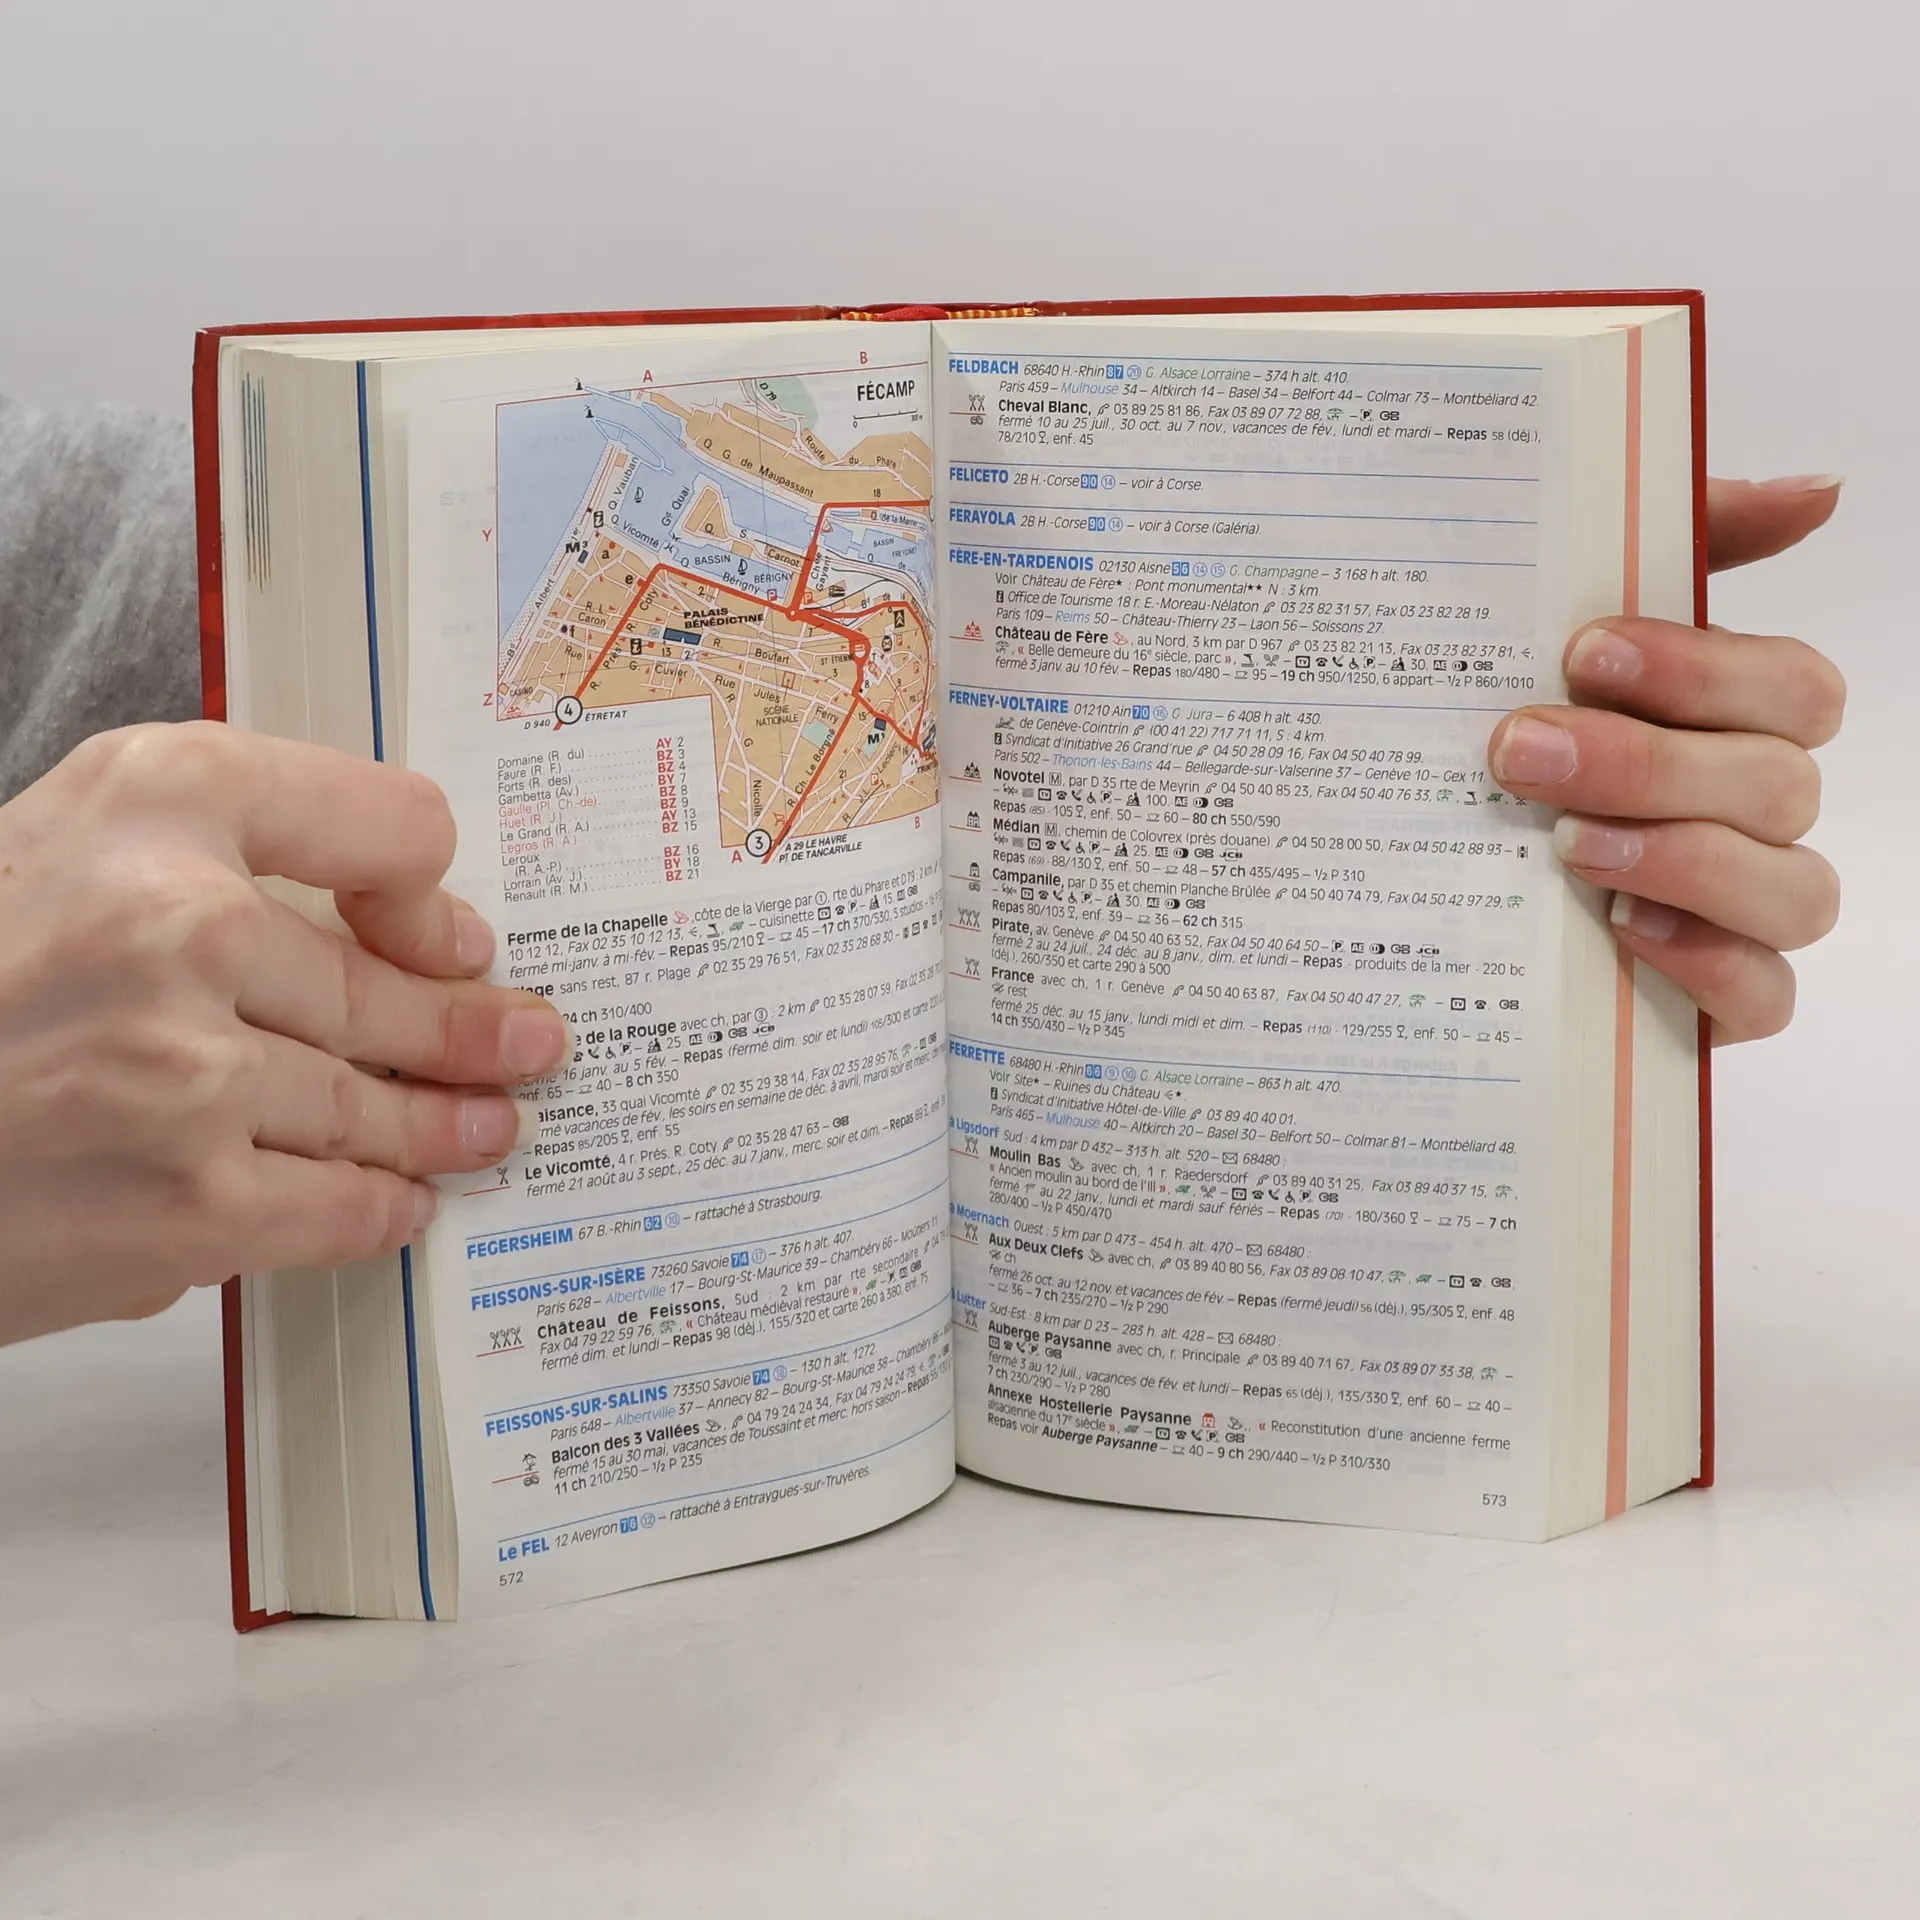 FÉCAMP
A
B
Y
Z
D 79
300 m
0
Route du Phare
Q. G. de Maupassant
Q. Vauban
Gd Quai
Q. Vicomté
18
Q. de la Marne
BASSIN FREYCINET
BASSIN BÉRIGNY
Carnot
Bérigny
Chée Gayant
M3
a
e
Albert 1er
Coty
2
PALAIS BÉNÉDICTINE
R. L. Caron
Rue
13
G. Cuvier
Boufart
Rue Jules Ferry
SCÈNE NATIONALE
ST ÉTIENNE
3
8
15
M1
16
21
Leclerc
R. Ch. Le Borgne
Nicolle
CASINO
D 940
4
ÉTRETAT
3
A
B
A 29 LE HAVRE
PT DE TANCARVILLE
Domaine (R. du) AY 2
Faure (R. F.) BZ 3
Forts (R. des) BZ 4
Gambetta (Av.) BY 7
Gaulle (Pl. Ch.-de) BZ 8
Huet (R. J.) BZ 9
Le Grand (R. A.) AY 13
Legros (R. A.) BZ 15
Leroux
(R. A.-P.) BZ 16
Lorrain (Av. J.) BY 18
Renault (R. M.) BZ 21
Ferme de la Chapelle, côte de la Vierge par ①, rte du Phare et D79 : 2 km
10 12 12, Fax 02 35 10 12 13, – cuisinette – 15.
fermé mi-janv. à mi-fév. – Repas 95/210 – 45 – 17 ch 370/530, 5 studios
sans rest, 87 r. Plage 02 35 29 76 51, Fax 02 35 28 68 30 –
24 ch 310/400
de la Rouge avec ch, par ③ : 2 km 02 35 28 07 59, Fax 02 35 28
– 25. AE GB JCB
16 janv. au 5 fév. – Repas (fermé dim. soir et lundi) 105/300 et carte
enf. 65 – 40 – 8 ch 350
aisance, 33 quai Vicomté 02 35 29 38 14, Fax 02 35 28 95 76,
vacances de fév., les soirs en semaine de déc. à avril, mardi soir et merc.
– Repas 85/205, enf. 55
Le Vicomté, 4 r. Prés. R. Coty 02 35 28 47 63 – GB
fermé 21 août au 3 sept., 25 déc. au 7 janv., merc. soir et dim. – Repas
FEGERSHEIM 67 B.-Rhin 62 ⑩ – rattaché à Strasbourg.
FEISSONS-SUR-ISÈRE 73260 Savoie 74 ⑰ – 376 h alt. 407.
Paris 628 – Albertville 17 – Bourg-St-Maurice 39 – Chambéry 66 – Moûtiers 11.
Château de Feissons, Sud : 2 km par rte secondaire
Fax 04 79 22 59 76, « Château médiéval restauré », – P. AE GB
fermé dim. et lundi – Repas 98 (déj.), 155/320 et carte 260 à 380, enf. 75
FEISSONS-SUR-SALINS 73350 Savoie 74 ⑱ – 130 h alt. 1272.
Paris 648 – Albertville 37 – Annecy 82 – Bourg-St-Maurice 38 – Chambéry 86
Balcon des 3 Vallées, 04 79 24 24 34, Fax 04 79 24 24 79,
fermé 15 au 30 mai, vacances de Toussaint et merc. hors saison – Repas
11 ch 210/250 – ½ P 235
Le FEL 12 Aveyron 76 ⑫ – rattaché à Entraygues-sur-Truyères.
572
FELDBACH 68640 H.-Rhin 87 ⑳ G. Alsace Lorraine – 374 h alt. 410.
Paris 459 – Mulhouse 34 – Altkirch 14 – Basel 34 – Belfort 44 – Colmar 73 – Montbéliard 42.
Cheval Blanc, 03 89 25 81 86, Fax 03 89 07 72 88, – P. GB
fermé 10 au 25 juil., 30 oct. au 7 nov., vacances de fév., lundi et mardi – Repas 58 (déj.),
78/210, enf. 45
FELICETO 2B H.-Corse 90 ⑭ – voir à Corse.
FERAYOLA 2B H.-Corse 90 ⑭ – voir à Corse (Galéria).
FÈRE-EN-TARDENOIS 02130 Aisne 56 ⑭ ⑮ G. Champagne – 3 168 h alt. 180.
Voir Château de Fère★ : Pont monumental★★ N : 3 km.
Office de Tourisme 18 r. E.-Moreau-Nélaton 03 23 82 31 57, Fax 03 23 82 28 19.
Paris 109 – Reims 50 – Château-Thierry 23 – Laon 56 – Soissons 27.
Château de Fère, au Nord, 3 km par D 967 03 23 82 21 13, Fax 03 23 82 37 81,
« Belle demeure du 16e siècle, parc », – P – 30. AE GB
fermé 3 janv. au 10 fév. – Repas 180/480 – 95 – 19 ch 950/1250, 6 appart – ½ P 860/1010
FERNEY-VOLTAIRE 01210 Ain 70 ⑯ G. Jura – 6 408 h alt. 430.
de Genève-Cointrin (00 41 22) 717 71 11, S : 4 km.
Syndicat d'Initiative 26 Grand'rue 04 50 28 09 16, Fax 04 50 40 78 99.
Paris 502 – Thonon-les-Bains 44 – Bellegarde-sur-Valserine 37 – Genève 10 – Gex 11.
Novotel M, par D 35 rte de Meyrin 04 50 40 85 23, Fax 04 50 40 76 33,
– TV P – 100. AE GB
Repas (85) - 105, enf. 50 – 60 – 80 ch 550/590
Médian M, chemin de Colovrex (près douane) 04 50 28 00 50, Fax 04 50 42 88 93 –
TV P – 25. AE GB JCB
Repas (69) - 88/130, enf. 50 – 48 – 57 ch 435/495 – ½ P 310
Campanile, par D 35 et chemin Planche Brûlée 04 50 40 74 79, Fax 04 50 42 97 29,
– TV P – 30. AE GB
Repas 80/103, enf. 39 – 36 – 62 ch 315
Pirate, av. Genève 04 50 40 63 52, Fax 04 50 40 64 50 – P. AE GB JCB
fermé 2 au 24 juil., 24 déc. au 8 janv., dim. et lundi – Repas - produits de la mer - 220 bc
(déj.), 260/350 et carte 290 à 500
France avec ch, 1 r. Genève 04 50 40 63 87, Fax 04 50 40 47 27, – TV GB
rest
fermé 25 déc. au 15 janv., lundi midi et dim. – Repas (110) - 129/255, enf. 50 – 45 –
14 ch 350/430 – ½ P 345
FERRETTE 68480 H.-Rhin 66 ⑨ ⑩ G. Alsace Lorraine – 863 h alt. 470.
Voir Site★ – Ruines du Château ★.
Syndicat d'Initiative Hôtel-de-Ville 03 89 40 40 01.
Paris 465 – Mulhouse 40 – Altkirch 20 – Basel 30 – Belfort 50 – Colmar 81 – Montbéliard 48.
à Ligsdorf Sud : 4 km par D 432 – 313 h. alt. 520 – 68480 :
Moulin Bas avec ch, 1 r. Raedersdorf 03 89 40 31 25, Fax 03 89 40 37 15,
« Ancien moulin au bord de l'Ill », – TV P. GB
fermé 1er au 22 janv., lundi et mardi sauf fériés – Repas (70) - 180/360 – 75 – 7 ch
280/400 – ½ P 450/470
à Moernach Ouest : 5 km par D 473 – 454 h. alt. 470 – 68480 :
Aux Deux Clefs avec ch, 03 89 40 80 56, Fax 03 89 08 10 47, – TV GB.
ch
fermé 26 oct. au 12 nov. et vacances de fév. – Repas (fermé jeudi) 56 (déj.), 95/305, enf. 48
– 36 – 7 ch 235/270 – ½ P 290
à Lutter Sud-Est : 8 km par D 23 – 283 h. alt. 428 – 68480 :
Auberge Paysanne avec ch, r. Principale 03 89 40 71 67, Fax 03 89 07 33 38, –
TV P. GB
fermé 3 au 12 juil., vacances de fév. et lundi – Repas 65 (déj.), 135/330, enf. 60 – 40 –
7 ch 230/290 – ½ P 280
Annexe Hostellerie Paysanne, « Reconstitution d'une ancienne ferme
alsacienne du 17e siècle », – TV P. GB
Repas voir Auberge Paysanne – 40 – 9 ch 290/440 – ½ P 310/330
573